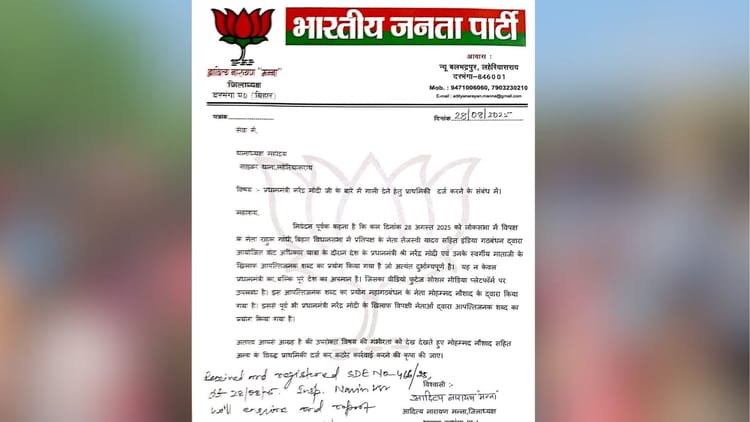 भारतीय जनता पार्टी
आदित्य नारायण "मन्ना"
जिलाध्यक्ष
दरभंगा प० (बिहार)
आवास :
न्यू बलभद्रपुर, लहेरियासराय
दरभंगा-846001
Mob. : 9471006060, 7903230210
E-mail : adityanarayan.manna@gmail.com
पत्रांक
दिनांक 28/08/2025
सेवा में,
थानाध्यक्ष महोदय
साइबर थाना,लहेरियासराय
विषय :- प्रधानमंत्री नरेंद्र मोदी जी के बारे में गाली देने हेतु प्राथमिकी दर्ज करने के संबंध में।
महाशय,
निवेदन पूर्वक कहना है कि कल दिनांक 28 अगस्त 2025 को लोकसभा में विपक्ष
के नेता राहुल गांधी,बिहार विधानसभा में प्रतिपक्ष के नेता तेजस्वी यादव सहित इंडिया गठबंधन द्वारा
आयोजित वोट अधिकार यात्रा के दौरान देश के प्रधानमंत्री श्री नरेंद्र मोदी एवं उनके स्वर्गीय माताजी के
खिलाफ आपत्तिजनक शब्द का प्रयोग किया गया है जो अत्यंत दुर्भाग्यपूर्ण है। यह न केवल
प्रधानमंत्री का,बल्कि पूरे देश का अपमान है। जिसका वीडियो फुटेज सोशल मीडिया प्लेटफॉर्म पर
उपलब्ध है। इस आपत्तिजनक शब्द का प्रयोग महागठबंधन के नेता मोहम्मद नौशाद के द्वारा किया
गया है। इससे पूर्व भी प्रधानमंत्री नरेंद्र मोदी के खिलाफ विपक्षी नेताओं द्वारा आपत्तिजनक शब्द का
प्रयोग किया गया है।
अतएव आपसे आग्रह है की उपरोक्त विषय की गंभीरता को देख देखते हुए मोहम्मद नौशाद सहित
अन्य के विरुद्ध प्राथमिकी दर्ज कर कठोर कार्रवाई करने की कृपा की जाए।
Received and registered SDE No-
28/08/25. Insp.
will enquire and report
विश्वासी :-
आदित्य नारायण "मन्ना"
आदित्य नारायण मन्ना,जिलाध्यक्ष